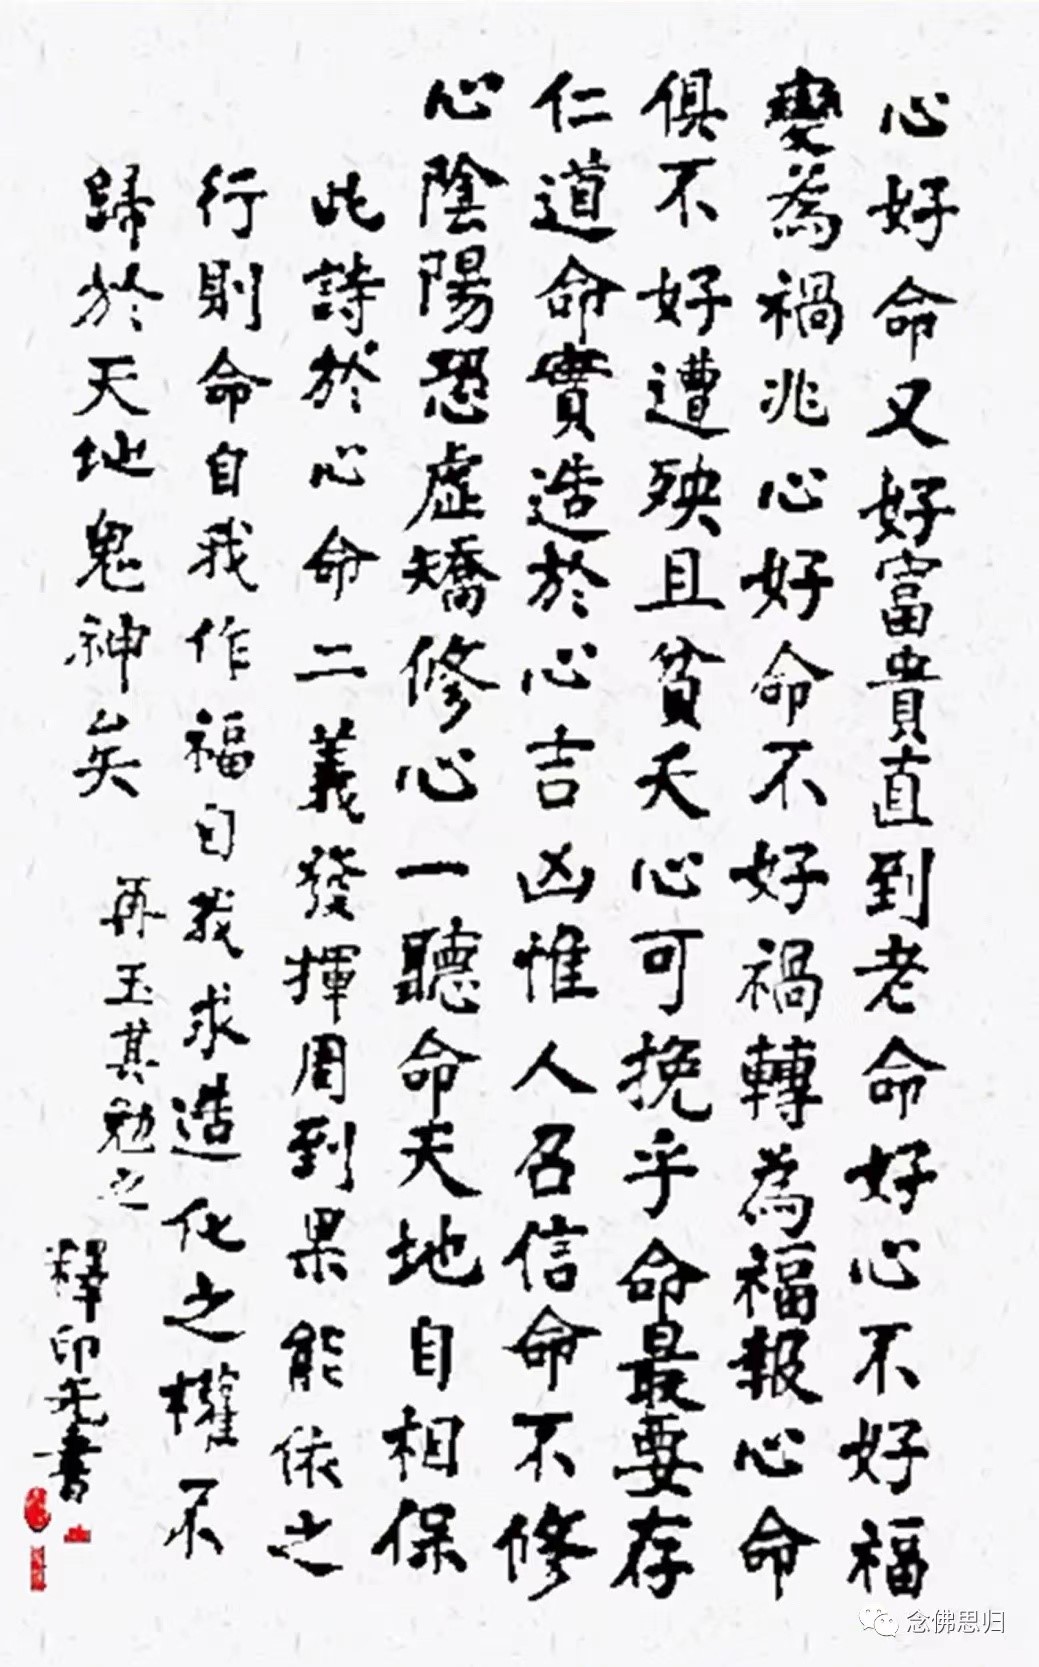 心好命又好富貴直到老命好心不好福
變為禍兆心好命不好禍轉為福報心命
俱不好遭殃且貧夭心可挽乎命最要存
仁道命實造於心吉凶惟人召信命不修
心陰陽恐虛矯修心一聽命天地自相保
此詩於心命二義發揮周到果能依之
行則命自我作福自我求造化之權不
歸於天地鬼神矣
再玉其勉之
釋印光書
念佛思归